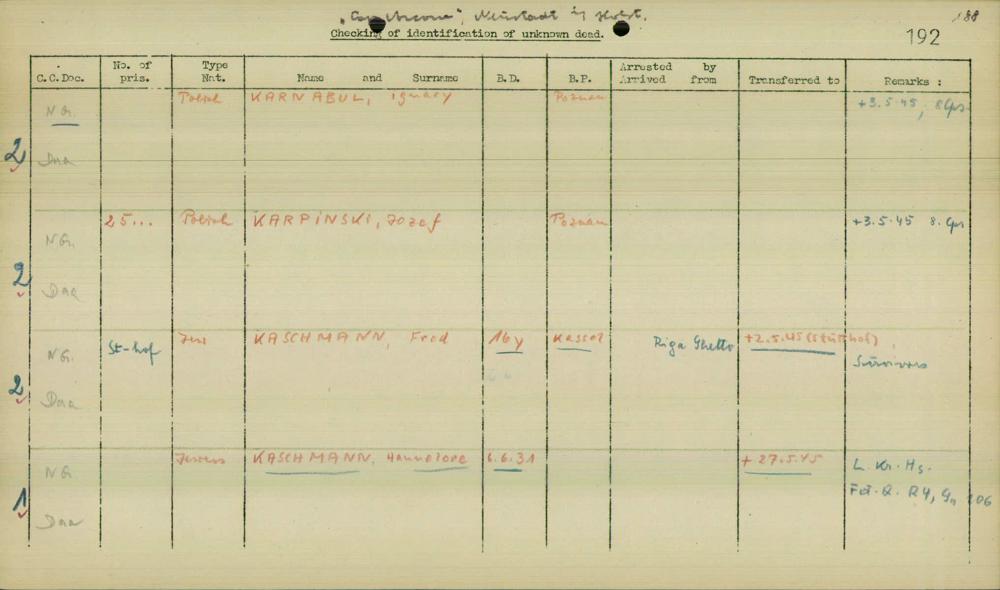 "Cap Arcona", Neustadt i/ Holst.
188
192
Checking of identification of unknown dead.
C.C.Doc. No. of pris. Type Nat. Name and Surname B.D. B.P. Arrested by Arrived from Transferred to Remarks :
NG. Polish KARNABUL, Ignacy Poznan +3.5.45, 8 Gps
2
25... Polish KARPINSKI, Jozef Poznan +3.5.45 8. Gps
NG.
2
NG. St-hof Jew KASCHMANN, Fred 16y Kassel Riga Ghetto +2.5.45 (Stutthof)
Survivors
2
NG. Jewess KASCHMANN, Hannelore 6.6.31 + 27.5.45 L. Kr. Hs.
R4, 106
1